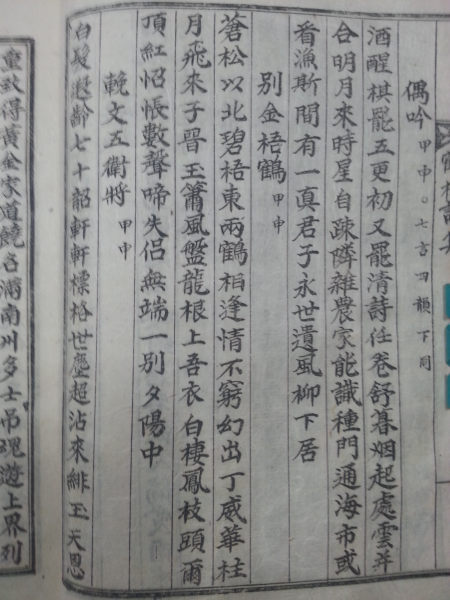 偶吟 甲申○七言四韻下同
酒醒棋罷五更初又罷清詩任卷舒暮烟起處雲并
合明月來時星自疎隣雜農家能識種門通海市或
看漁斯間有一真君子永世遺風柳下居
別金梧鶴 甲申
蒼松以北碧梧東兩鶴相逢情不窮幻出丁威華柱
月飛來子晉玉簫風盤龍根上吾衣白棲鳳枝頭爾
頂紅怊悵數聲啼失侶無端一別夕陽中
輓文五衛將 甲申
白髮遐齡七十韶軒軒標格世塵超沾來緋玉天恩
重致得黃金家道饒名滿南州多士吊魂遊上界列